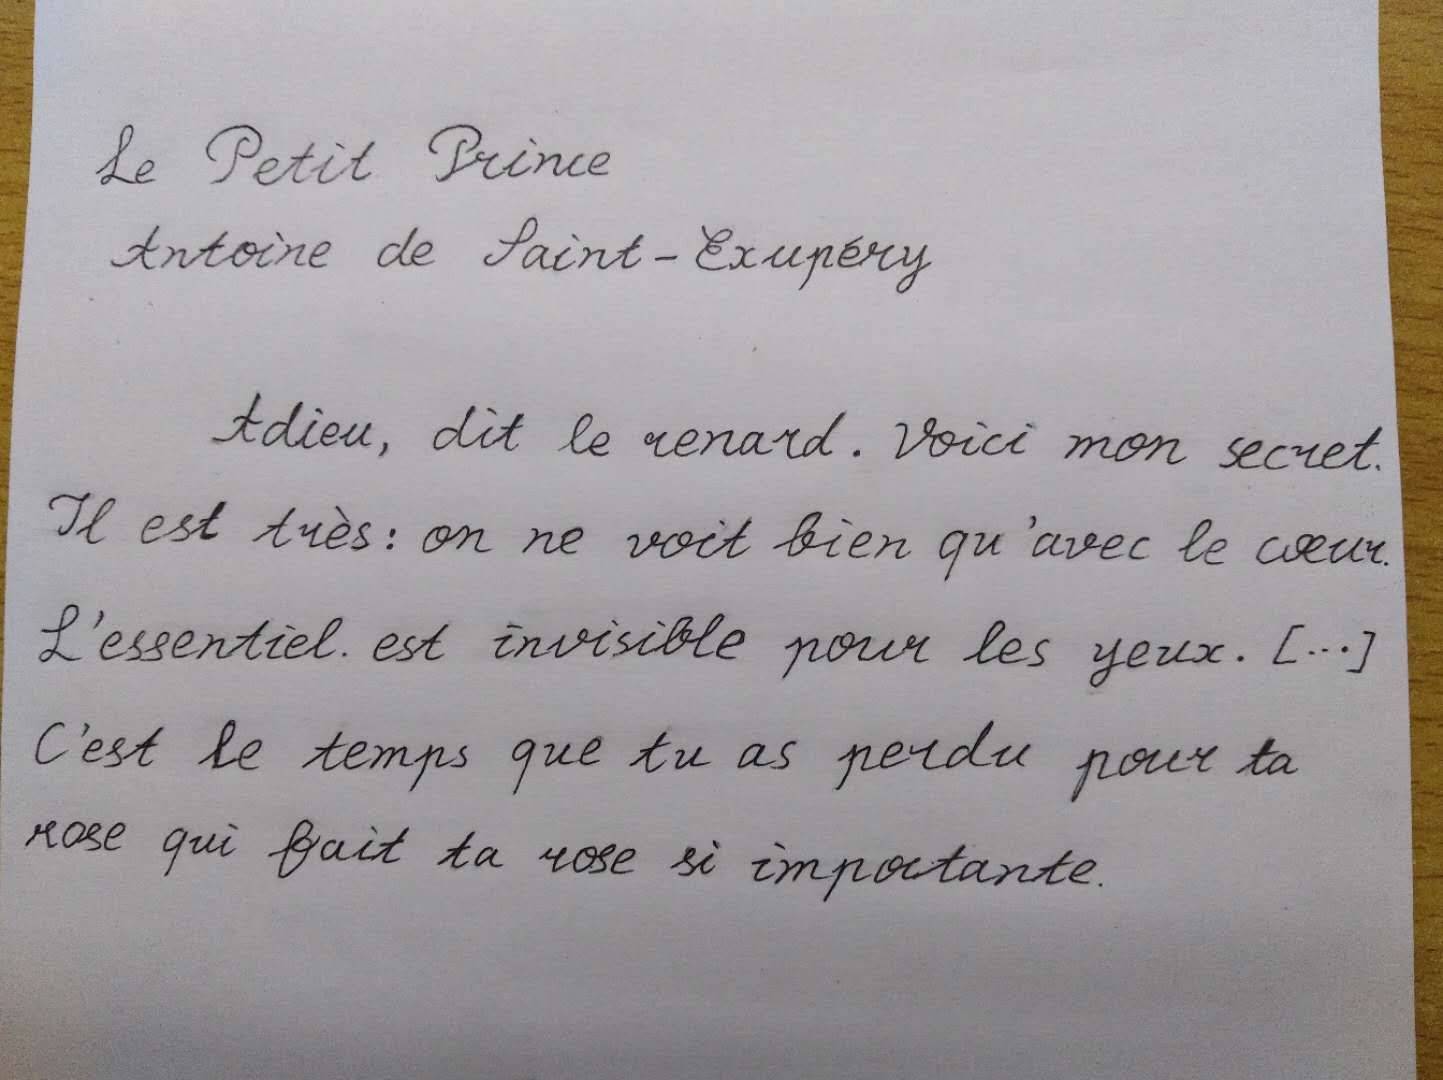 Le Petit Prince
Antoine de Saint-Exupéry
Adieu, dit le renard. Voici mon secret.
Il est très: on ne voit bien qu'avec le cœur.
L'essentiel. est invisible pour les yeux. [...]
C'est le temps que tu as perdu pour ta
rose qui fait ta rose si importante.